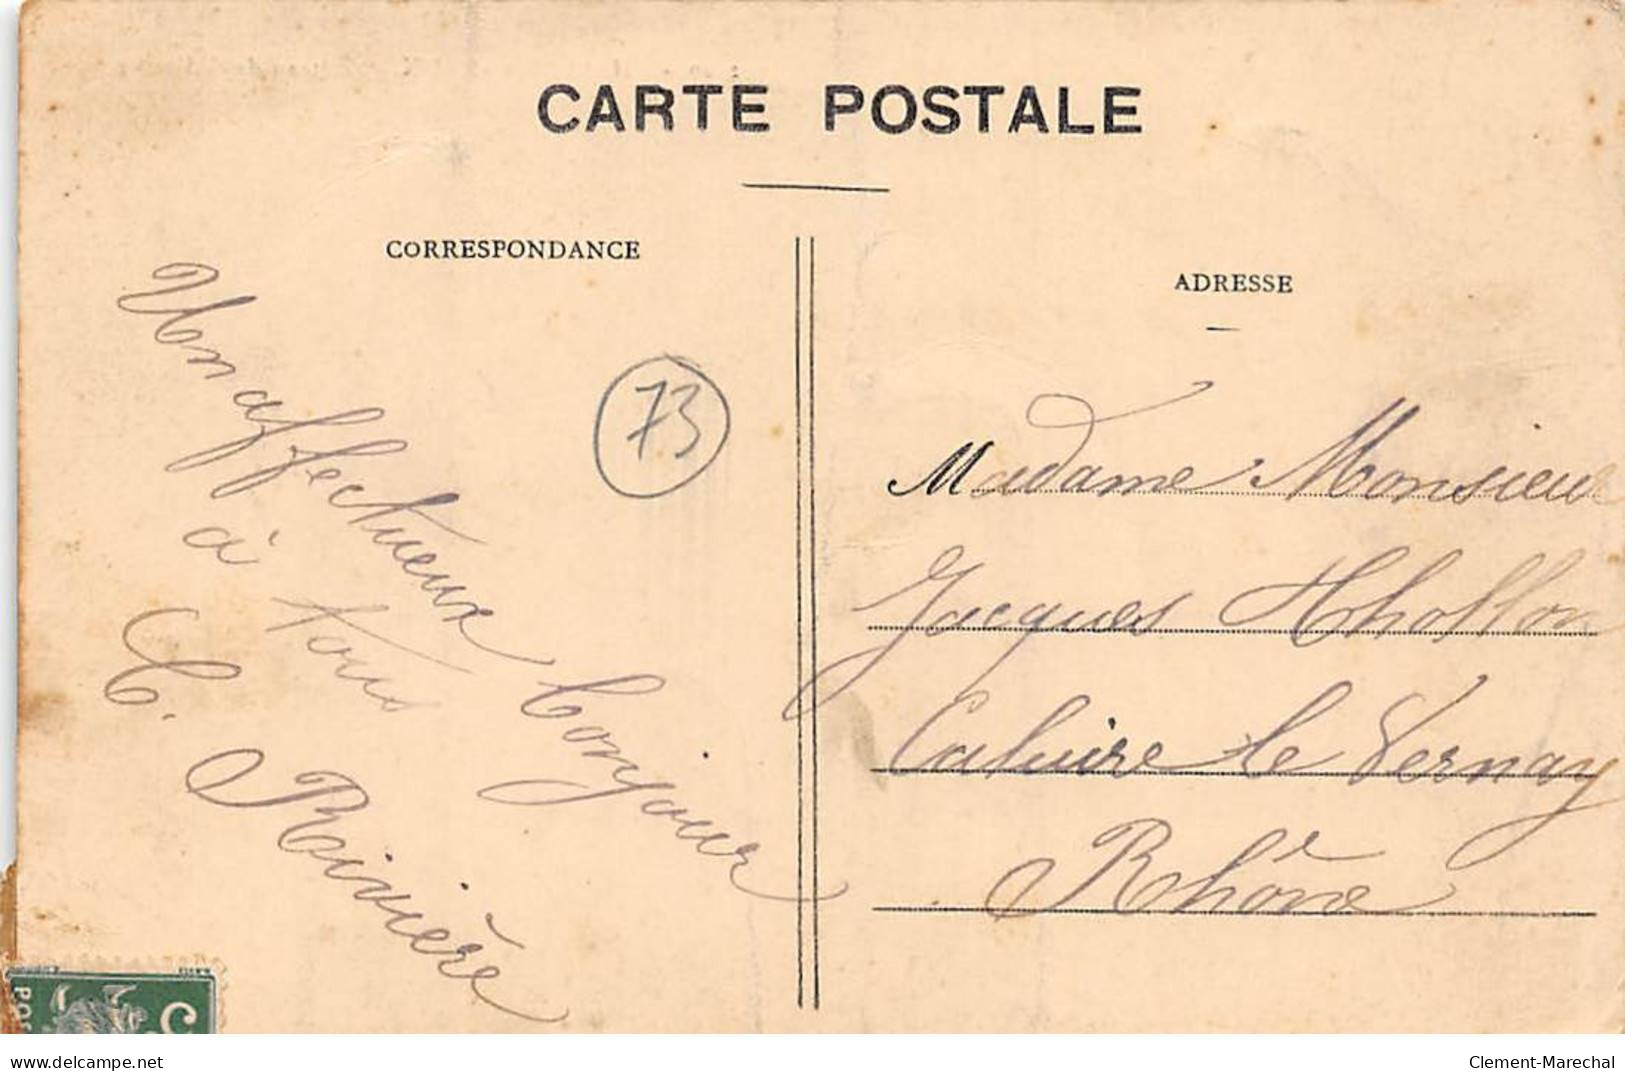 CARTE POSTALE
CORRESPONDANCE
ADRESSE
Un affectueux bonjour
à tous
C. Rivière
73
Madame Monsieur
Jacques
Caluire le Vernay
Rhône
5
delcampe.net
Clement-Marechal